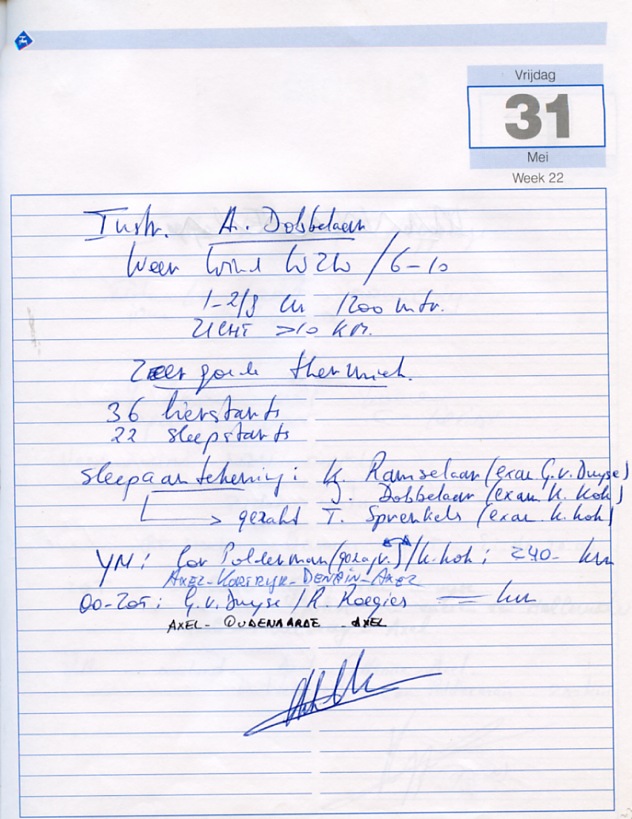 Vrijdag
31
Mei
Week 22
Instr. A. Dobbelaar
Weer Wind WZW / 6-10
1-2/8 cu 1200 mtr.
ZICHT >10 KM.
Zeer goede thermiek.
36 lierstarts
22 sleepstarts
sleepaantekening: K. Ramselaar (exam G.v.Duyse)
J. Dobbelaar (exam K. Koh)
> gezakt T. Sprenkels (exam K. Koh)
YM: Cor Polderman / K. Koh : 240 - km
AXEL - KORTRIJK - DENAIN - AXEL
OO-ZOT: G.v.Duyse / R. Roegies km
AXEL - OUDENAARDE - AXEL